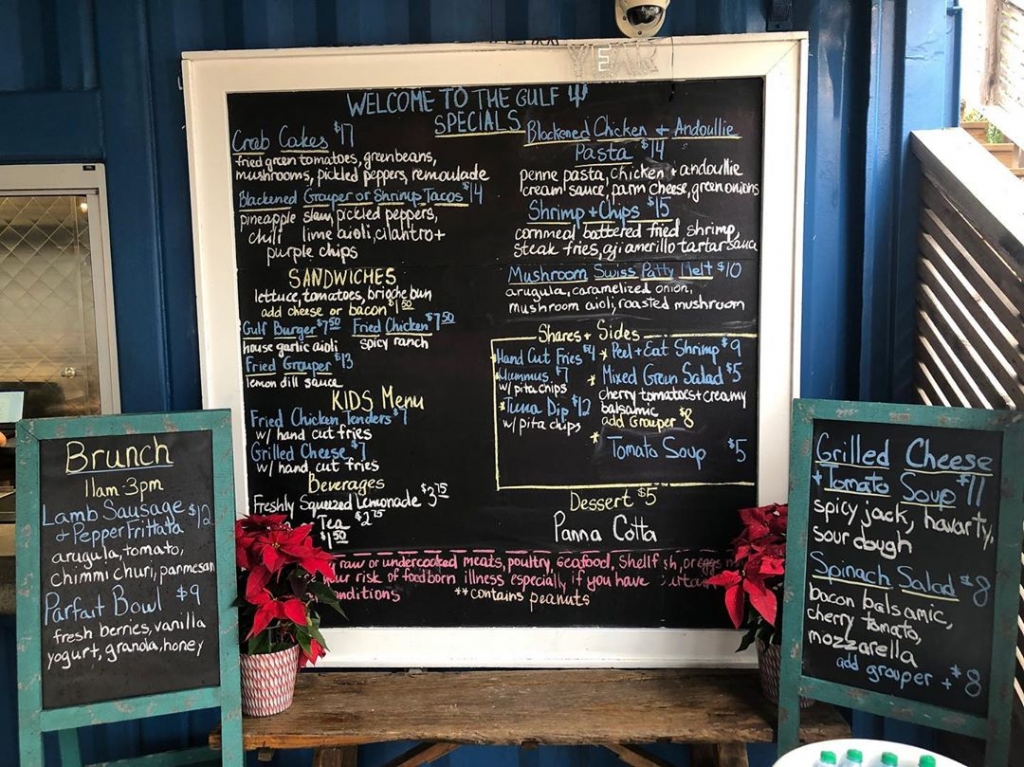 YEAR
WELCOME TO THE GULF
SPECIALS
Crab Cakes $17
fried green tomatoes, greenbeans,
mushrooms, pickled peppers, remoulade
Blackened Grouper or Shrimp Tacos $14
pineapple slaw, pickled peppers,
chili lime aioli, cilantro +
purple chips
SANDWICHES
lettuce, tomatoes, brioche bun
add cheese or bacon $1.50
Gulf Burger $7.50
house garlic aioli
Fried Chicken $7.50
spicy ranch
Fried Grouper $13
lemon dill sauce
KIDS Menu
Fried Chicken Tenders $7
w/ hand cut fries
Grilled Cheese $7
w/ hand cut fries
Beverages
Freshly Squeezed Lemonade $3.75
Tea $2.75
$1.50
Blackened Chicken + Andoullie
Pasta $14
penne pasta, chicken + andoullie
cream sauce, parm cheese, green onions
Shrimp + Chips $15
cornmeal battered fried shrimp,
steak fries, aji amerillo tartar sauce
Mushroom Swiss Patty Melt $10
arugula, caramelized onion,
mushroom aioli, roasted mushroom
Shares + Sides
Hand Cut Fries $4
Hummus $7
w/ pita chips
* Tuna Dip $12
w/ pita chips
* Peel + Eat Shrimp $9
* Mixed Green Salad $5
cherry tomatoes + creamy
balsamic
add Grouper $8
* Tomato Soup $5
Dessert $5
Panna Cotta
raw or undercooked meats, poultry, seafood, Shellfish, or eggs
your risk of foodborn illness especially if you have
conditions **contains peanuts
Brunch
11am-3pm
Lamb Sausage $12
+ Pepper Frittata
arugula, tomato,
chimmi churi, parmesan
Parfait Bowl $9
fresh berries, vanilla
yogurt, granola, honey
Grilled Cheese
+ Tomato Soup $11
spicy jack, havarty,
sour dough
Spinach Salad $8
bacon balsamic,
cherry tomato,
mozzarella
add grouper + $8